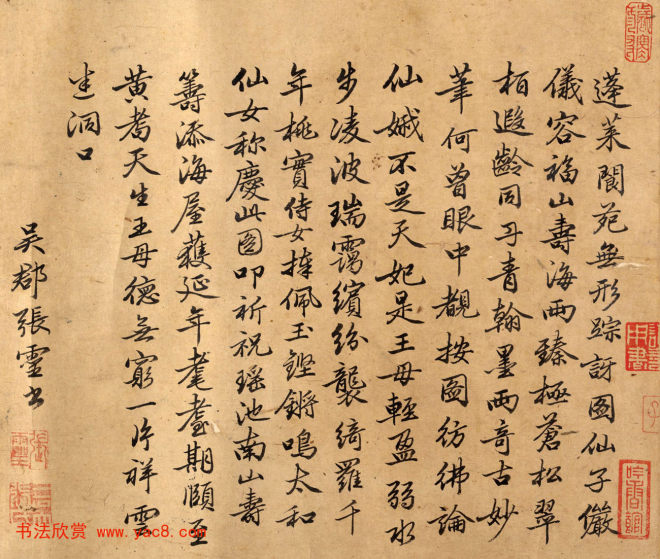 蓬萊閬苑無形踪訝圖仙子儼
儀容福山壽海兩臻極蒼松翠
栢遐齡同丹青翰墨兩奇古妙
筆何曾眼中覩按圖彷彿論
仙娥不是天妃是王母輕盈弱水
步凌波瑞靄繽紛襲綺羅千
年桃實侍女捧佩玉鏗鏘鳴太和
仙女称慶此圖叩祈祝瑶池南山壽
籌添海屋蘐延年耄耋期頤至
黄耇天生王母德無窮一片祥雲
迷洞口
吴郡張靈書
书法欣赏 www.yac8.com